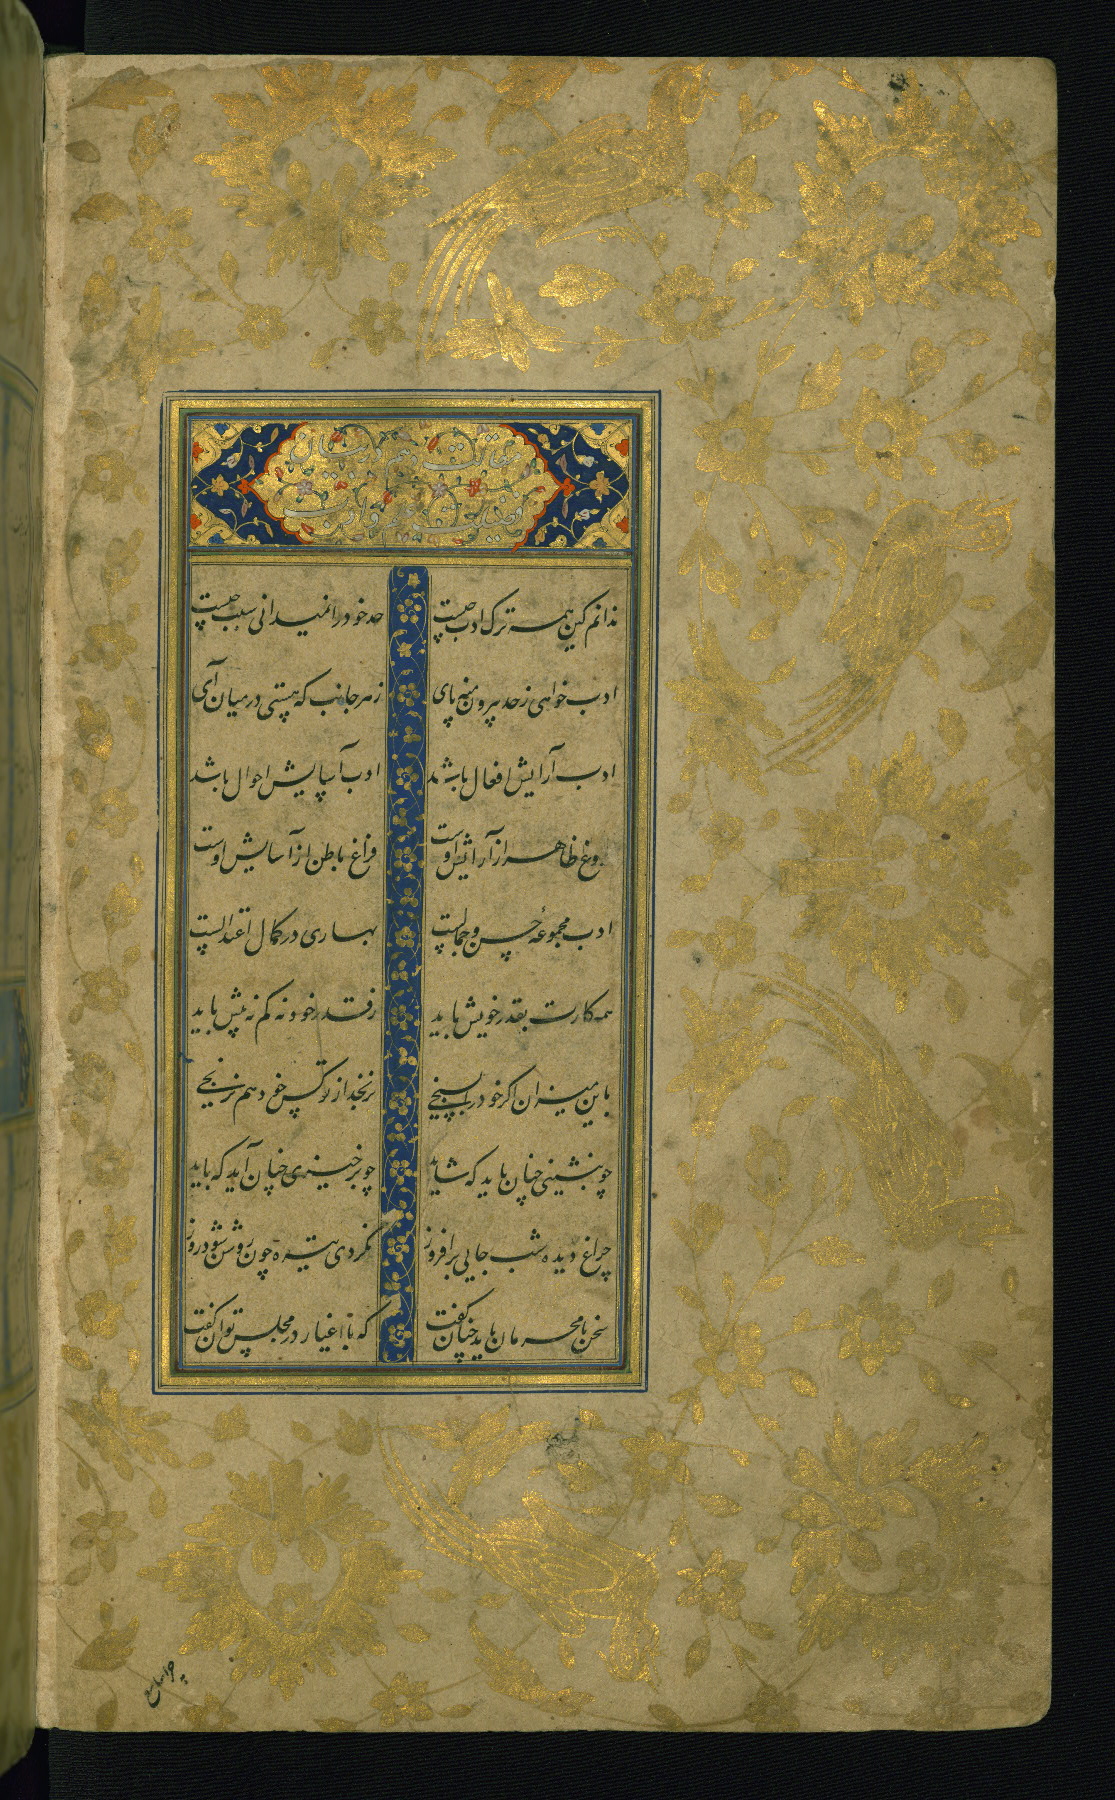 ندانم کین همه ترک ادب چیست حد خود را نمیدانی سبب چیست
ادب خواهی ز حد بیرون منه پای ز هر جانب که هستی در میان آی
ادب آرایش افعال باشد ادب آسایش احوال باشد
فروغ ظاهر از آرایش اوست فراغ باطن از آسایش اوست
ادب مجموعهٔ حسن و جمالست بهاری در کمال اعتدالست
همه کارت بقدر خویش باید ز قدر خود نه کم نه بیش باید
باین میزان اگر خود را بسنجی نرنجد از تو کس خود هم نرنجی
چو بنشینی چنان باید که شاید چو برخیزی چنان آید که باید
چراغ دیده شب جایی برافروز نگردی تیره چون روشن شود روز
سخن با محرمان باید چنان گفت که با اغیار در مجلس توان گفت